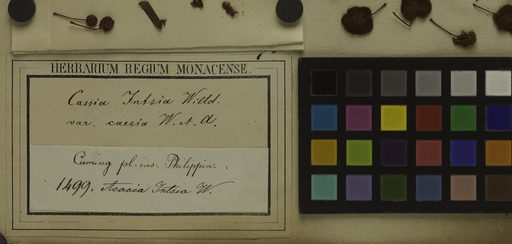 HERBARIUM REGIUM MONACENSE.
Cassia Intsia Willd.
var. caesia W. A.
Cuming pl. ins. Philippin.
1499. Acacia Intsia W.